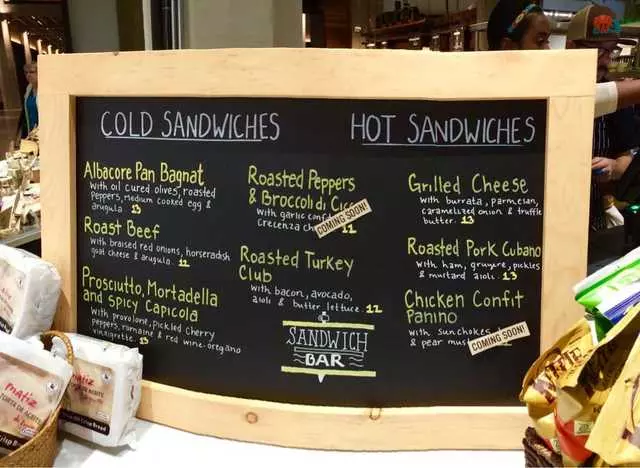 COLD SANDWICHES
Albacore Pan Bagnat
with oil cured olives, roasted
peppers, medium cooked egg &
arugula 13
Roast Beef
with braised red onions, horseradish
goat cheese & arugula. 12
Prosciutto, Mortadella
and spicy Capicola
with provolone, Pickled Cherry
peppers, romaine & red wine-oregano
vinaigrette. 13
Roasted Peppers
& Broccoli di
with garlic
crecenza 11
COMING SOON!
Roasted Turkey
Club
with bacon, avocado,
aioli & butter lettuce. 12
SANDWICH
BAR
HOT SANDWICHES
Grilled Cheese
with burrata, parmesan,
caramelized onion & truffle
butter. 13
Roasted Pork Cubano
with ham, gruyere, pickles
& mustard aioli. 13
Chicken Confit
Panino
with sunchokes
& pear
COMING SOON!
matiz
TORTA DE ACEITE
Crisp Bread
matiz
TORTAS DE ACEITE
Crisp Bread